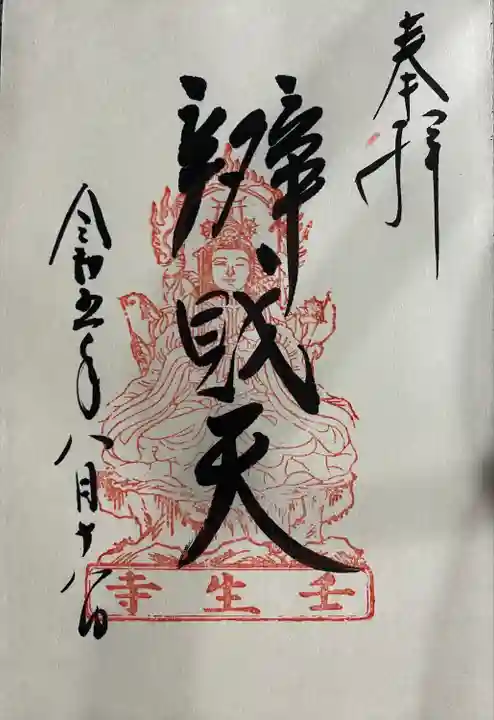 奉拝
辨財天
令和五年八月十八日
壬生寺